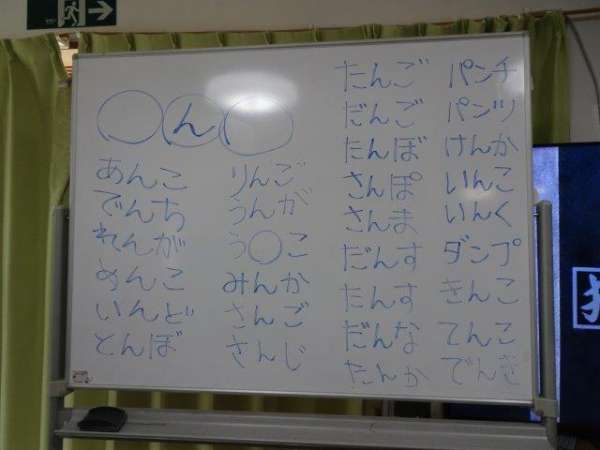 ◯ん◯
あんこ
でんち
れんが
めんこ
いんど
とんぼ
りんご
うんが
う◯こ
みんか
さんご
さんじ
たんご
だんご
たんぼ
さんぽ
さんま
だんす
たんす
だんな
たんか
パンチ
パンツ
けんか
いんこ
いんく
ダンプ
きんこ
てんこ
でんき